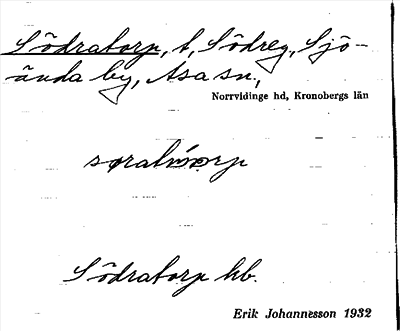 Södratorp, t, Södreg, Sjö-
ända by, Asa sn.,
Norrvidinge hd, Kronobergs län
Södratorp hb.
Erik Johannesson 1932